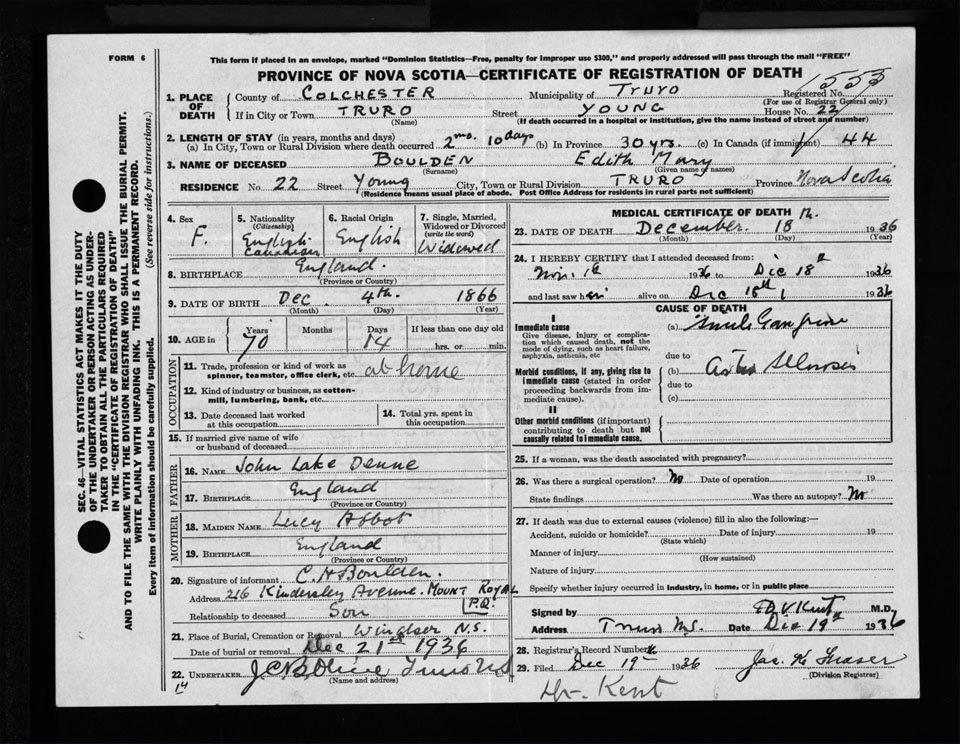 FORM 6
This form if placed in an envelope, marked "Dominion Statistics—Free, penalty for improper use $300," and properly addressed will pass through the mail "FREE"
PROVINCE OF NOVA SCOTIA—CERTIFICATE OF REGISTRATION OF DEATH
1. PLACE OF DEATH County of COLCHESTER Municipality of Truro Registered No. 1553
(For use of Registrar General only)
If in City or Town TRURO Street YOUNG House No. 22
(Name) (If death occurred in a hospital or institution, give the name instead of street and number)
2. LENGTH OF STAY (in years, months and days)
(a) In City, Town or Rural Division where death occurred 2 mos. 10 days (b) In Province 30 yrs. (c) In Canada (if immigrant) 44
3. NAME OF DECEASED BOULDEN Edith Mary
(Surname) (Given name or names)
RESIDENCE No. 22 Street Young City, Town or Rural Division TRURO Province Nova Scotia
(Residence means usual place of abode. Post Office Address for residents in rural parts not sufficient)
4. Sex F.
5. Nationality (Citizenship) English Canadian
6. Racial Origin English
7. Single, Married, Widowed or Divorced (write the word) Widowed
8. BIRTHPLACE England.
(Province or Country)
9. DATE OF BIRTH Dec. 4th. 1866
(Month) (Day) (Year)
10. AGE in Years 70 Months Days 14 If less than one day old hrs. or min.
OCCUPATION
11. Trade, profession or kind of work as spinner, teamster, office clerk, etc. at home
12. Kind of industry or business, as cotton-mill, lumbering, bank, etc.
13. Date deceased last worked at this occupation
14. Total yrs. spent in this occupation
15. If married give name of wife or husband of deceased
FATHER
16. NAME John Lake Denne
17. BIRTHPLACE England
(Province or Country)
MOTHER
18. MAIDEN NAME Lucy Abbot
19. BIRTHPLACE England
(Province or Country)
20. Signature of informant C. H Boulden.
Address 216 Kindersley Avenue. MOUNT ROYAL P.Q.
Relationship to deceased Son
21. Place of Burial, Cremation or Removal Windsor N.S.
Date of burial or removal Dec 21st 1936
22. UNDERTAKER Truro N.S
(Name and address)
14
MEDICAL CERTIFICATE OF DEATH
23. DATE OF DEATH December. 18 th. 1936
(Month) (Day) (Year)
24. I HEREBY CERTIFY that I attended deceased from:
1936 to Dec 18th 1936
and last saw her alive on Dec 18th 1936
CAUSE OF DEATH
I
Immediate cause
Give disease, injury or complication which caused death, not the mode of dying, such as heart failure, asphyxia, asthenia, etc
(a) Senile Gangrene
due to
Morbid conditions, if any, giving rise to immediate cause (stated in order proceeding backwards from immediate cause).
(b)
due to
(c)
II
Other morbid conditions (if important) contributing to death but not causally related to immediate cause.
25. If a woman, was the death associated with pregnancy?
26. Was there a surgical operation? No Date of operation 19
State findings Was there an autopsy? No
27. If death was due to external causes (violence) fill in also the following:—
Accident, suicide or homicide? Date of injury 19
(State which)
Manner of injury
(How sustained)
Nature of injury
Specify whether injury occurred in industry, in home, or in public place
Signed by Kent M.D.
Address Truro N.S. Date Dec 19th 1936
28. Registrar's Record Number
29. Filed Dec 19th 1936 Jas. K Fraser
(Division Registrar)
Dr. Kent
SEC. 46—VITAL STATISTICS ACT MAKES IT THE DUTY
OF THE UNDERTAKER OR PERSON ACTING AS UNDER-
TAKER TO OBTAIN ALL THE PARTICULARS REQUIRED
IN THE "CERTIFICATE OF REGISTRATION OF DEATH"
AND TO FILE THE SAME WITH THE DIVISION REGISTRAR WHO SHALL ISSUE THE BURIAL PERMIT.
WRITE PLAINLY WITH UNFADING INK. THIS IS A PERMANENT RECORD.
Every item of information should be carefully supplied. (See reverse side for instructions.)